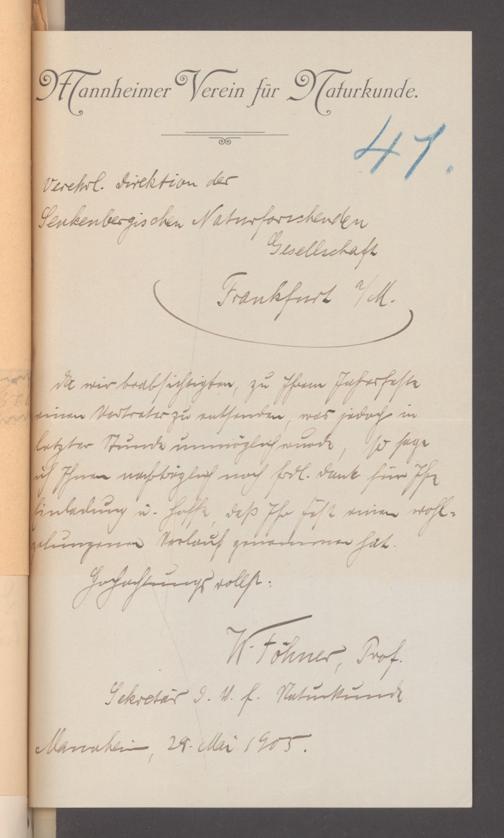 Mannheimer Verein für Naturkunde.
41.
Verehrl. Direktion der
Senkenbergischen Naturforschenden
Gesellschaft
Frankfurt a/M.
Da wir beabsichtigten, zu Ihrem Jahresfeste
einen Vertreter zu entsenden, was jedoch in
letzter Stunde unmöglich wurde, so sage
ich Ihnen nachträglich noch frdl. Dank für Ihre
Einladung u. hoffe, daß Ihr Fest einen wohl-
gelungenen Verlauf genommen hat.
Hochachtungsvollst:
W. Föhner, Prof.
Sekretär d. V. f. Naturkunde
Mannheim, 29. Mai 1905.